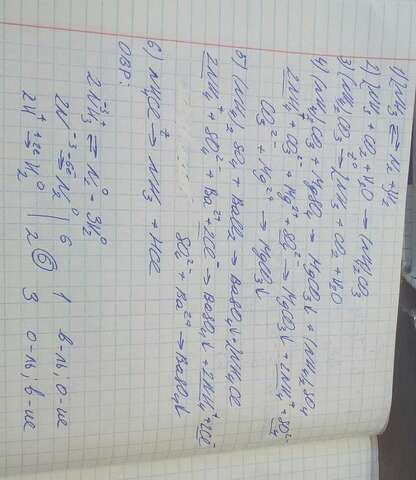 1) 2NH₃ ⇄ N₂ + H₂
2) 2NH₃ + CO₂ + H₂O → (NH₄)₂CO₃
3) (NH₄)₂CO₃ →t° 2NH₃ + CO₂ + H₂O
4) (NH₄)₂CO₃ + MgSO₄ → MgCO₃↓ + (NH₄)₂SO₄
2NH₄⁺ + CO₃²⁻ + Mg²⁺ + SO₄²⁻ → MgCO₃↓ + 2NH₄⁺ + SO₄²⁻
CO₃²⁻ + Mg²⁺ → MgCO₃↓
5) (NH₄)₂SO₄ + BaCl₂ → BaSO₄↓ + 2NH₄Cl
2NH₄⁺ + SO₄²⁻ + Ba²⁺ + 2Cl⁻ → BaSO₄↓ + 2NH₄⁺ + 2Cl⁻
SO₄²⁻ + Ba²⁺ → BaSO₄↓
6) NH₄Cl →t NH₃ + HCl
ОВР:
2N⁻³H₃⁺ ⇄ N₂⁰ + 3H₂⁰
2N⁻³ -6e→ N₂⁰ | 6 | 1 в-ль; о-ие
2H⁺ +2e→ H₂⁰ | 2 (6) 3 о-ль; в-ие